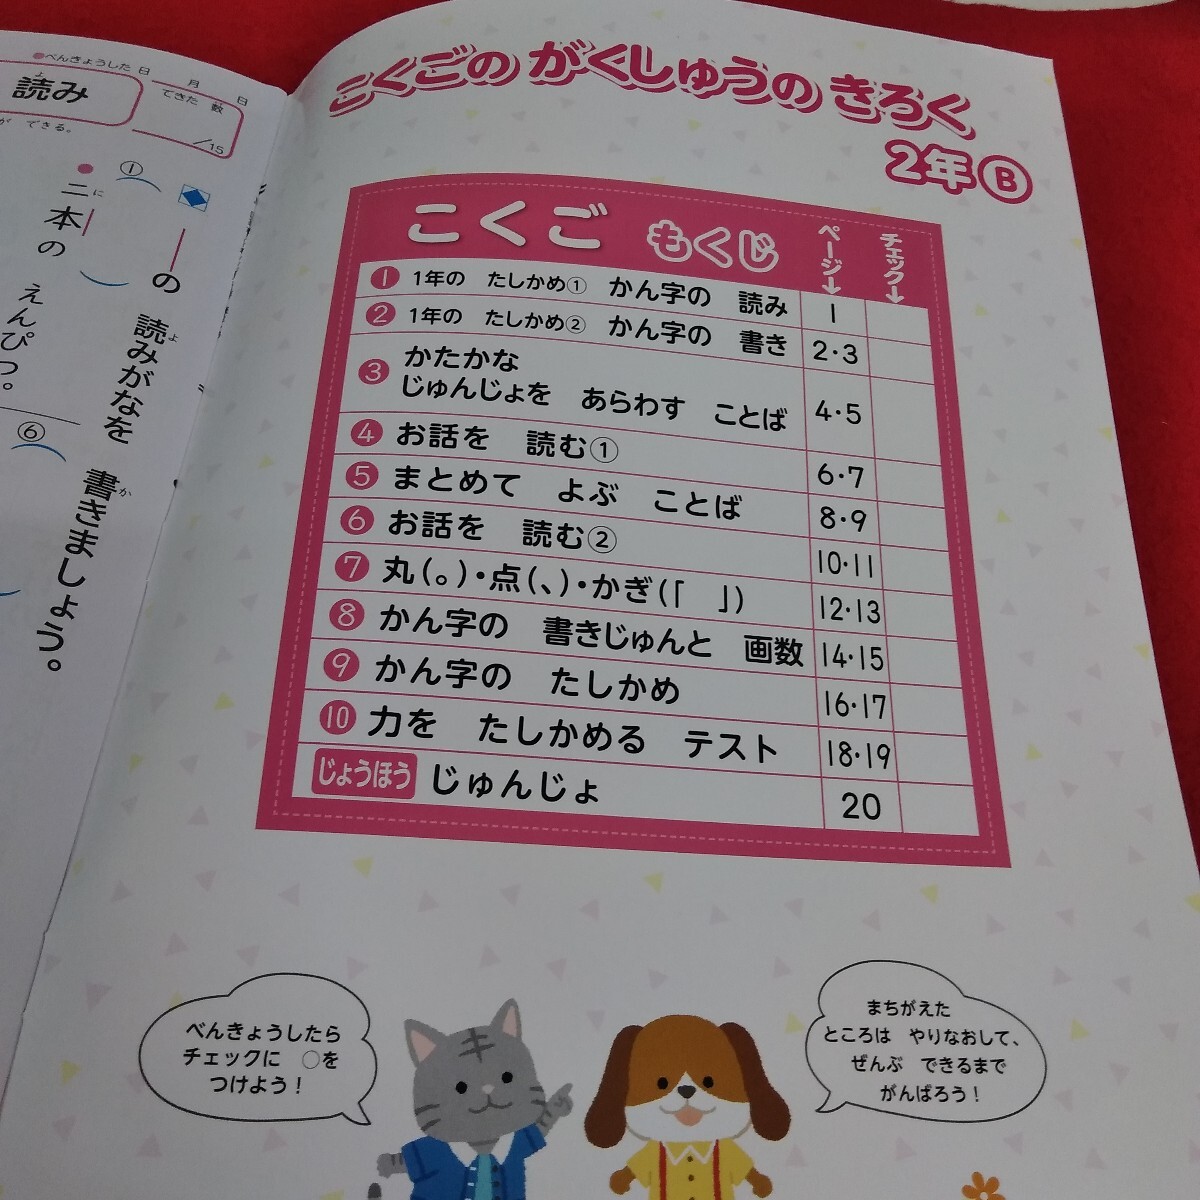 こくごの がくしゅうの きろく
2年 B
こくご もくじ ページ↓ チェック↓
1 1年の たしかめ① かん字の 読み 1
2 1年の たしかめ② かん字の 書き 2・3
3 かたかな
じゅんじょを あらわす ことば 4・5
4 お話を 読む① 6・7
5 まとめて よぶ ことば 8・9
6 お話を 読む② 10・11
7 丸(。)・点(、)・かぎ(「 」) 12・13
8 かん字の 書きじゅんと 画数 14・15
9 かん字の たしかめ 16・17
10 力を たしかめる テスト 18・19
じょうほう じゅんじょ 20
べんきょうしたら
チェックに ○を
つけよう!
まちがえた
ところは やりなおして、
ぜんぶ できるまで
がんばろう!
●べんきょうした 日 月 日
読み
よ
できた 数
/15
が できる。
の 読みがなを 書きましょう。
よ
か
①
二本の えんぴつ。
に
⑥